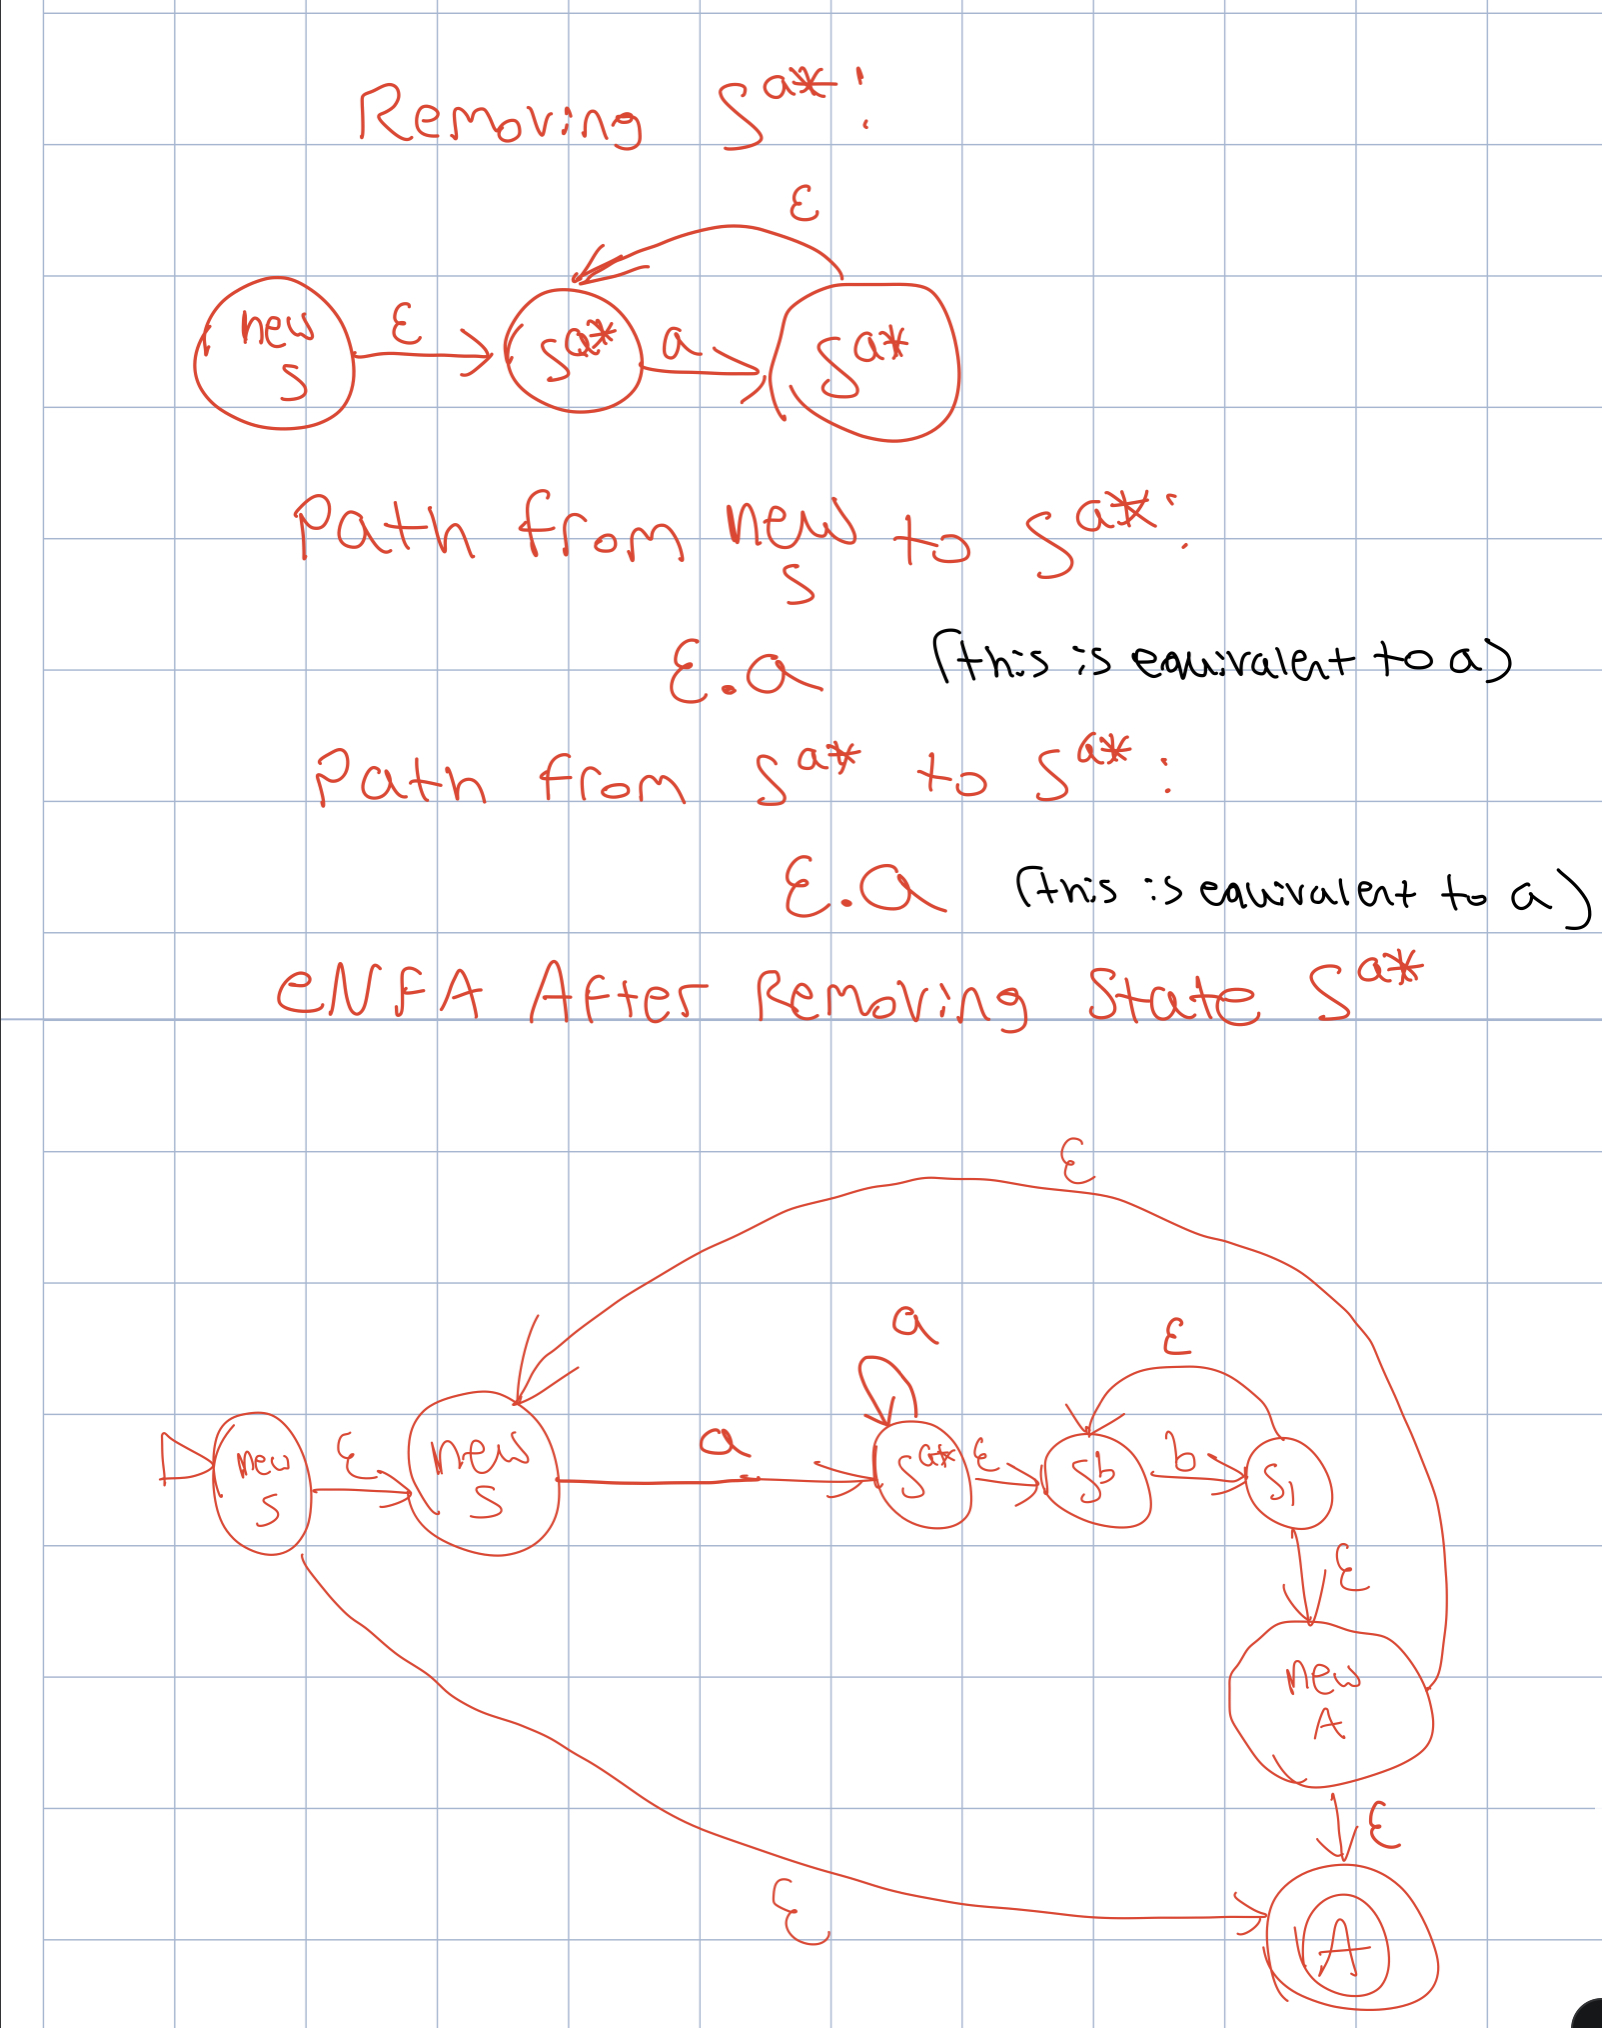 Removing S^a*:
ε
new S ε S^a* a S^a*
Path from new S to S^a*:
ε.a (this is equivalent to a)
Path from S^a* to S^a*:
ε.a (this is equivalent to a)
eNFA After Removing State S^a*
ε
a ε
new S ε new S a S^a* ε S^b b S1
ε
new A
ε
ε
A